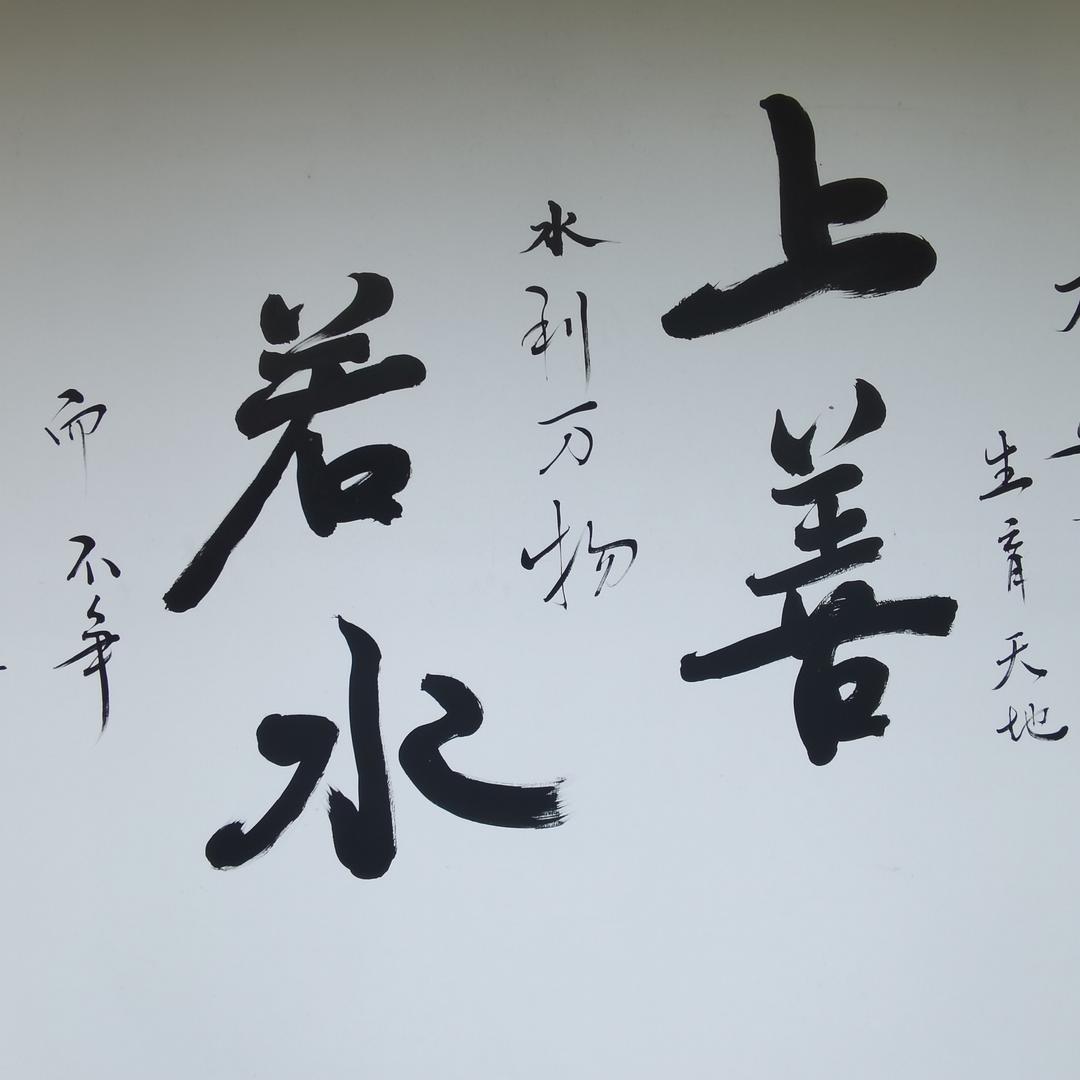 生育天地
上善
水利万物
若水
而不争